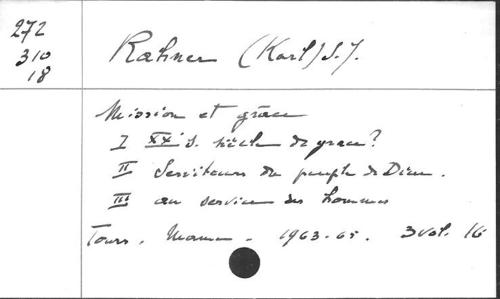 272
310
18
Rahner (Karl) S.J.
Mission et grâce
I XXe s. siècle de grace?
II Serviteurs du peuple de Dieu.
III au service des hommes
Tours. Mame. 1963-65. 3 vol. 16